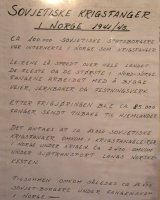 SOVJETISKE KRIGSFANGER
I NORGE 1941/45
CA 100000 SOVJETISKE STATSBORGERE
VAR INTERNERT I NORGE SOM KRIGSFANGER.
LEIRENE LÅ SPREDT OVER HELE LANDET.
DE FLESTE OG DE STØRSTE I NORD-NORGE.
FANGENE ARBEIDET MED Å BYGGE
VEIER, JERNBANER OG FESTNINGSVERK.
ETTER FRIGJØRINGEN BLE CA 85000
FANGER SENDT TILBAKE TIL HJEMLANDET
DET ANTAS AT CA SOVJETISKE
KRIGSFANGER OMKOM I KRIGSFANGELEIRER
I NORGE UNDER KRIGEN. CA 2800 OMKOM
UNDER SJØTRANSPORT LANGS NORSKE-
KYSTEN.
TILSAMMEN OMKOM SÅLEDES CA
SOVJET-BORGERE UNDER FANGENSKAP
I NORGE